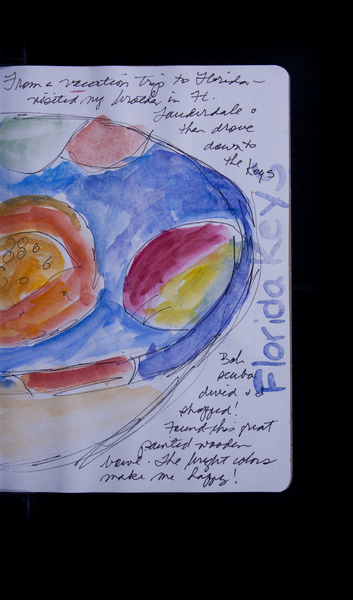 From a vacation trip to Florida -
visited my brother in Ft.
Lauderdale &
then drove
down to
the Keys
Florida Keys
Bob
scuba
dived & I
shopped!
Found this great
painted wooden
bowl. The bright colors
make me happy!